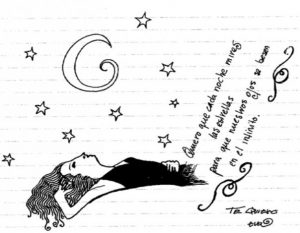 Quiero que cada noche mires
las estrellas
para que nuestros ojos se besen
en el infinito.
Te quiero